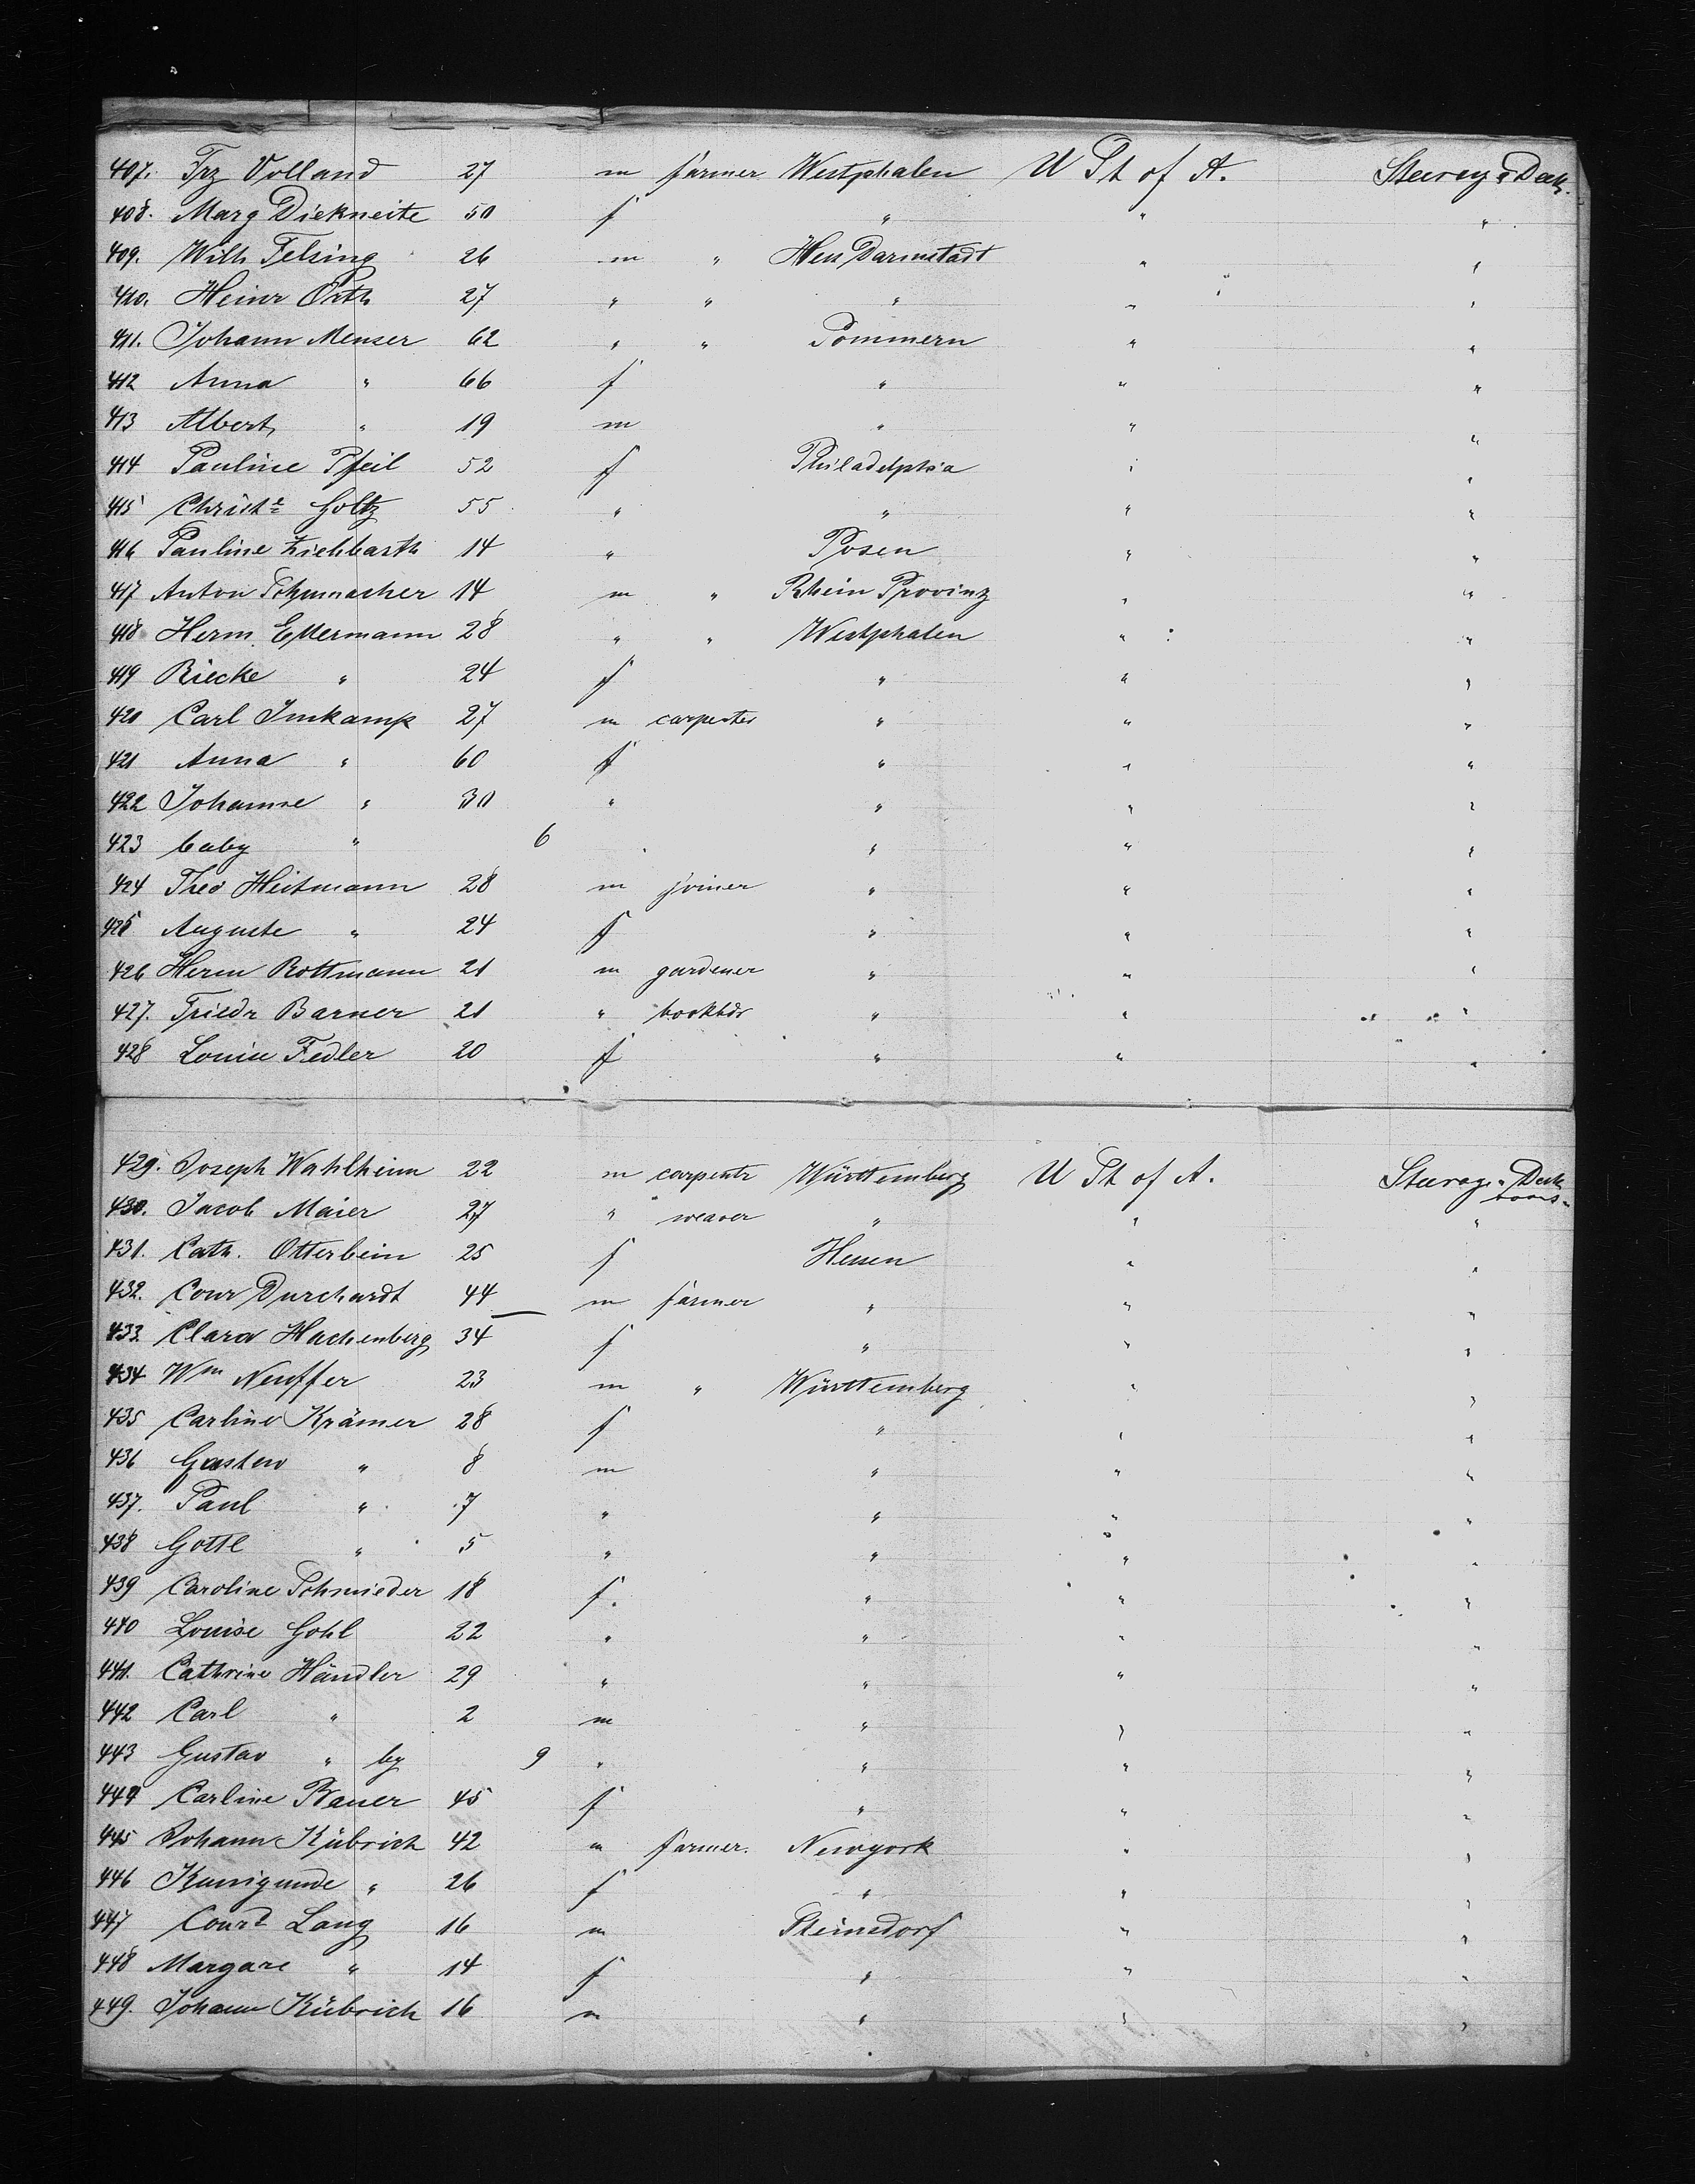 407. Frz Volland 27 m farmer Westphalen U St of A. Steerage Deck.
408. Marg Diekneite 50 f " " "
409. Wilh Felsing 26 m " Hess Darmstadt " "
410. Heinr Orth 27 " " " " "
411. Johann Menser 62 " " Pommern " "
412 Anna " 66 f " " "
413 Albert " 19 m " " "
414 Pauline Pfeil 52 f Philadelphia " "
415 Christe Goltz 55 " " " "
416 Pauline Ziehbarth 14 " Posen " "
417 Anton Schumacher 14 m " Rhein Provinz " "
418 Herm. Ellermann 28 " " Westphalen " "
419 Riecke " 24 f " " "
420 Carl Imkamp 27 m carpenter " " "
421 Anna " 60 f " " "
422 Johanne " 30 " " " "
423 baby " 6 " " "
424 Theo Heitmann 28 m joiner " " "
425 Auguste " 24 f " " "
426 Herm Rottmann 21 m gardener " " "
427. Friedr Barner 21 " bookbdr " " "
428 Louise Fedler 20 f " " "
429. Joseph Wahlheim 22 m carpentr Württemberg U St of A. Steerage Deck
430. Jacob Maier 27 " weaver " " "
431. Cath. Otterbein 25 f Hessen " "
432. Conr Durchardt 44 m farmer " " "
433. Clara Hachenberg 34 f " " "
434 Wm Neuffer 23 m " Württemberg " "
435 Carline Krämer 28 f " " "
436 Gustav " 8 m " " "
437. Paul " 7 " " " "
438 Gottl " 5 " " " "
439 Caroline Schmieder 18 f. " " "
440 Louise Gohl 22 " " " "
441. Cathrine Händler 29 " " " "
442 Carl " 2 m " " "
443 Gustav " by 9 " " " "
444 Carline Bauer 45 f " " "
445 Johann Kübrich 42 m farmer. Newyork " "
446 Kunigunde " 26 f " " "
447 Conrd Lang 16 m Steinsdorf " "
448 Margare " 14 f " " "
449. Johann Kübrich 16 m " " "